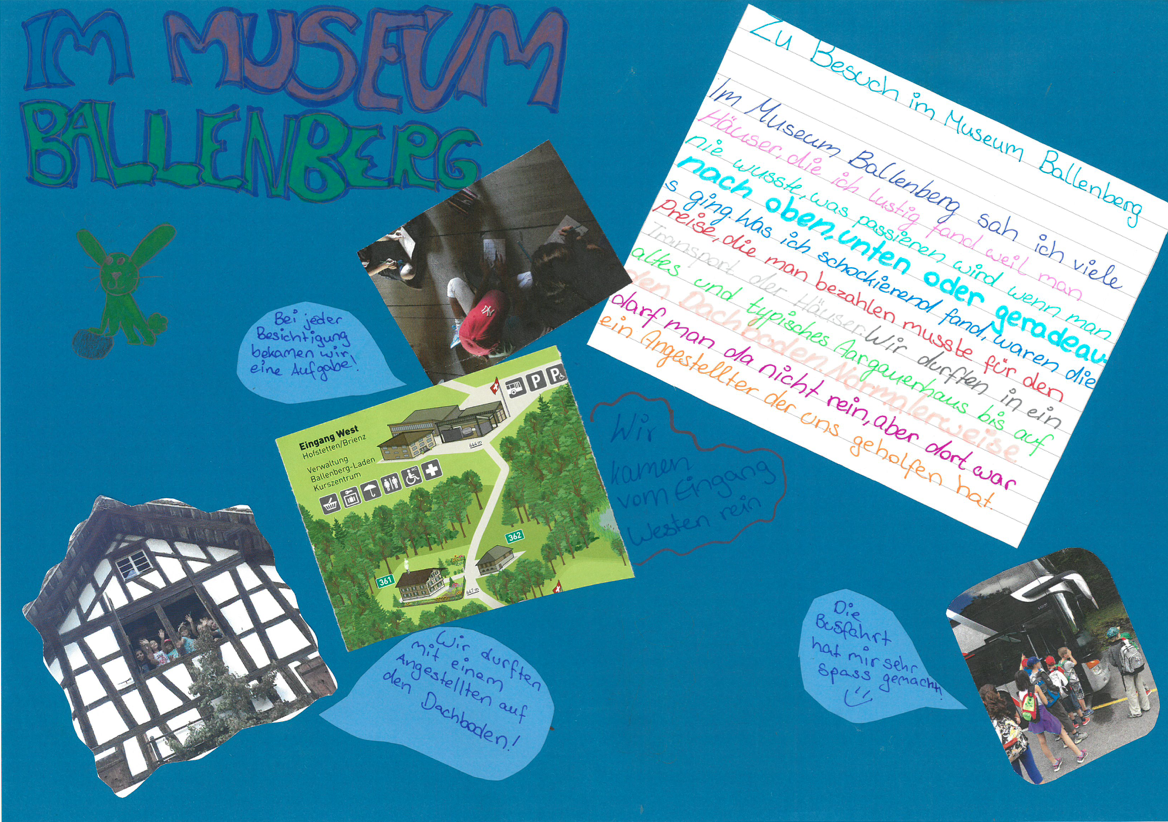 IM MUSEUM
BALLENBERG
Zu Besuch im Museum Ballenberg
Im Museum Ballenberg sah ich viele
Häuser, die ich lustig fand weil man
nie wusste, was passieren wird wenn man
nach oben, unten oder geradeau-
s ging. Was ich schockierend fand, waren die
Preise, die man bezahlen musste für den
Transport der Häuser. Wir durften in ein
altes und typisches Aargauerhaus bis auf
den Dachboden. Normalerweise
darf man da nicht rein, aber dort war
ein Angestellter der uns geholfen hat.
Bei jeder
Besichtigung
bekamen wir
eine Aufgabe!
Eingang West
Hofstetten/Brienz
Verwaltung
Ballenberg-Laden
Kurszentrum
P P
666 m
362
361
647 m
Wir
kamen
vom Eingang
Westen rein
Wir durften
mit einem
Angestellten auf
den
Dachboden!
Die
Busfahrt
hat mir sehr
Spass gemacht!